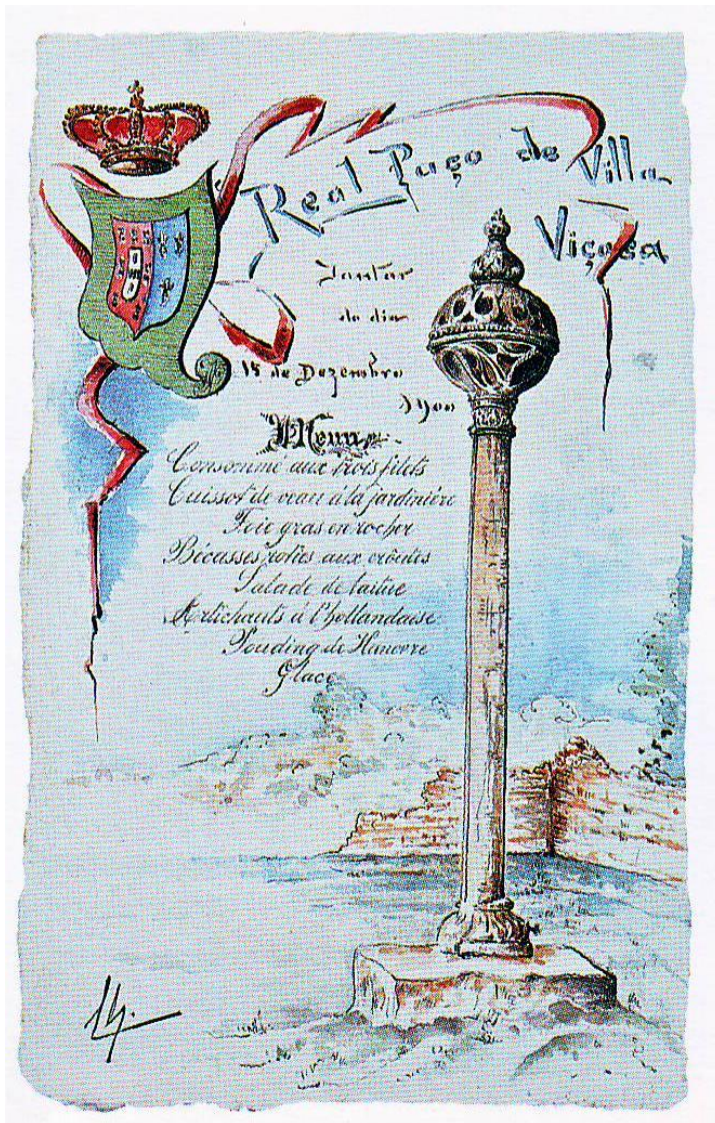 Real Paço de Villa
Viçosa
Jantar
do dia
15 de Dezembro
1900
Menu
Consommé aux trois filets
Cuissot de veau à la jardinière
Foie gras en rocher
Bécasses roties aux croûtes
Salade de laitue
Artichauts à l'hollandaise
Pouding de Hanovre
Glace